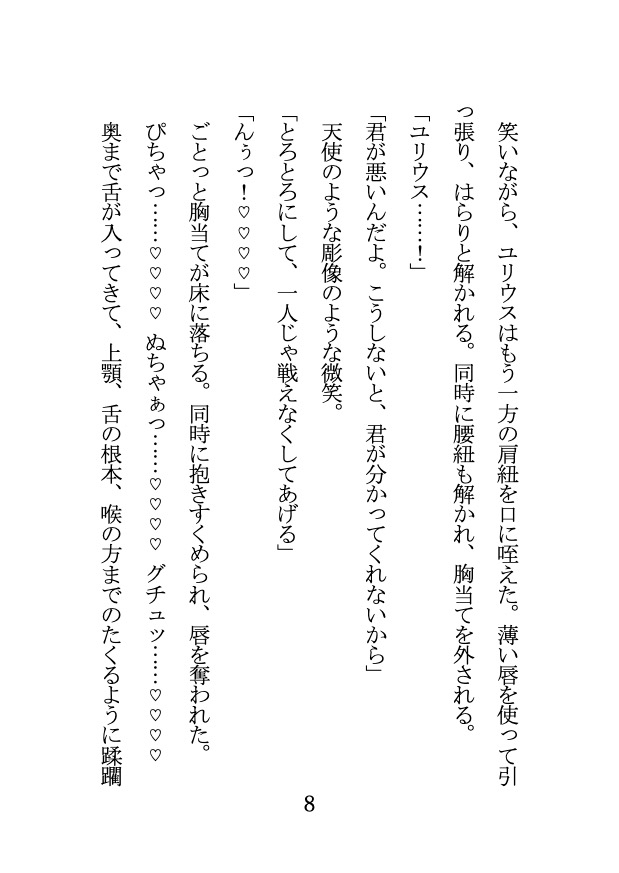 笑いながら、ユリウスはもう一方の肩紐を口に咥えた。薄い唇を使って引
っ張り、はらりと解かれる。同時に腰紐も解かれ、胸当てを外される。
「ユリウス……！」
「君が悪いんだよ。こうしないと、君が分かってくれないから」
天使のような彫像のような微笑。
「とろとろにして、一人じゃ戦えなくしてあげる」
「んぅっ！♡♡♡♡」
ごとっと胸当てが床に落ちる。同時に抱きすくめられ、唇を奪われた。
ぴちゃっ……♡♡♡♡ ぬちゃぁっ……♡♡♡♡ グチュッ……♡♡♡♡
奥まで舌が入ってきて、上顎、舌の根本、喉の方までのたくるように蹂躙
8